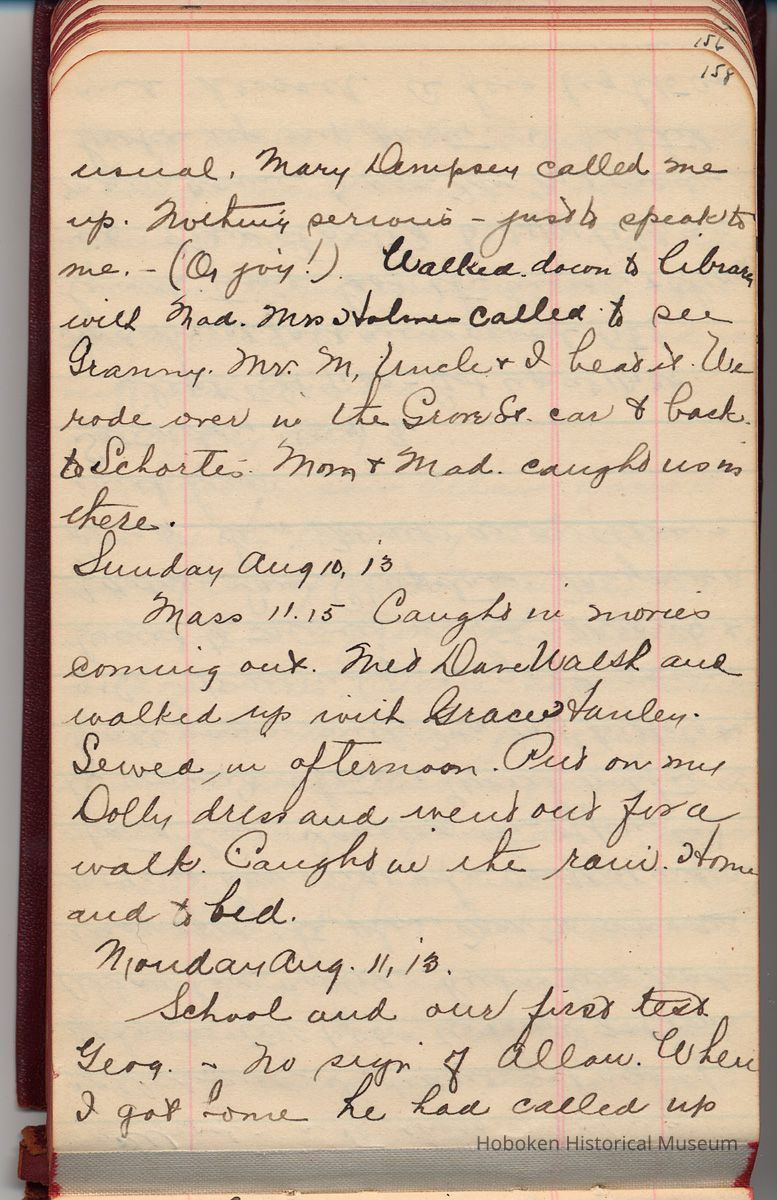 156
158
usual. Mary Dempsey called me
up. Nothing serious - just to speak to
me. - (Oh joy!). Walked down to library
with Mad. Mrs Holmes called to see
Granny. Mr. M, Uncle & I beat it. We
rode over in the Grove St. car & back
to Schortes. Mom & Mad. caught us in
there.
Sunday Aug 10, 13
Mass 11.15 Caught in movies
coming out. Met Dave Walsh and
walked up with Grace Hanley.
Sewed in afternoon. Put on my
Dolly dress and went out for a
walk. Caught in the rain. Home
and to bed.
Monday Aug. 11, 13.
School and our first test
Geog. - No sign of Allan. When
I got home he had called up
Hoboken Historical Museum